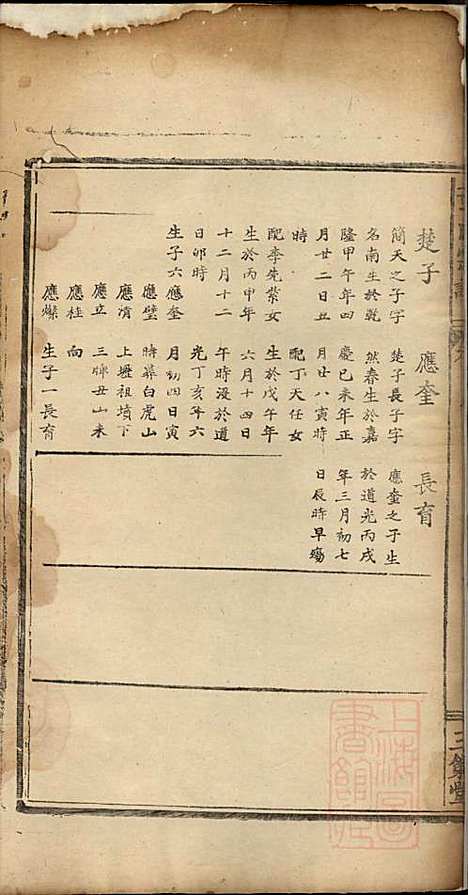 楚子
簡天之子字
名南生於乾
隆甲午年四
月廿二日丑
時
配李先紫女
生於丙申年
十二月十二
日卯時
生子六應奎
應璧
應清
應立
應桂
應燦
應奎
楚子長子字
然春生於嘉
慶已未年正
月廿八寅時
配丁天任女
生於戊午年
六月十四日
午時沒於道
光丁亥年六
月初四日寅
時葬白虎山
上壠祖墳下
三牌丑山未
向
生子一長育
長育
應奎之子生
於道光丙戌
年三月初七
日辰時早殤
上海圖
書館藏